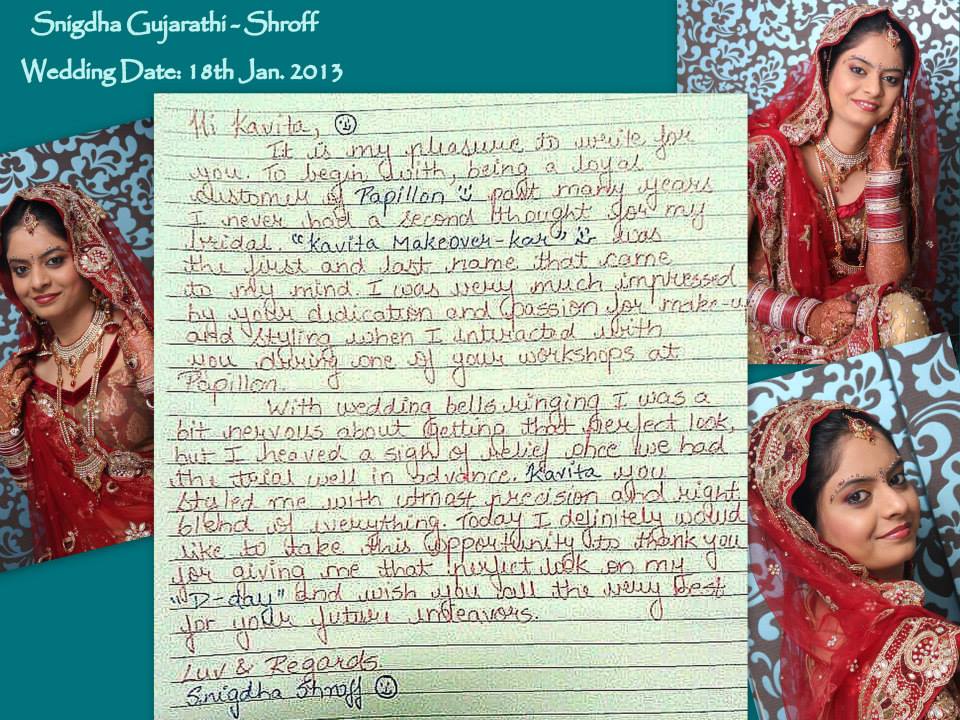 Snigdha Gujarathi - Shroff
Wedding Date: 18th Jan. 2013
Hi Kavita, ☺
It is my pleasure to write for
you. To begin with, being a loyal
customer of Papillon past many years
I never had a second thought for my
bridal. "Kavita Makeover-kar" was
the first and last name that came
to my mind. I was very much impressed
by your didication and passion for make-u
and styling when I interacted with
you during one of your workshops at
Papillon.
With wedding bells ringing I was a
bit nervous about getting that perfect look,
but I heaved a sigh of relief once we had
the trial well in advance. Kavita you
styled me with utmost precision and right
blend of everything. Today I definitely would
like to take this opportunity to thank you
for giving me that perfect look on my
"D-day" and wish you all the very best
for your future endeavors.
Luv & Regards.
Snigdha Shroff ☺